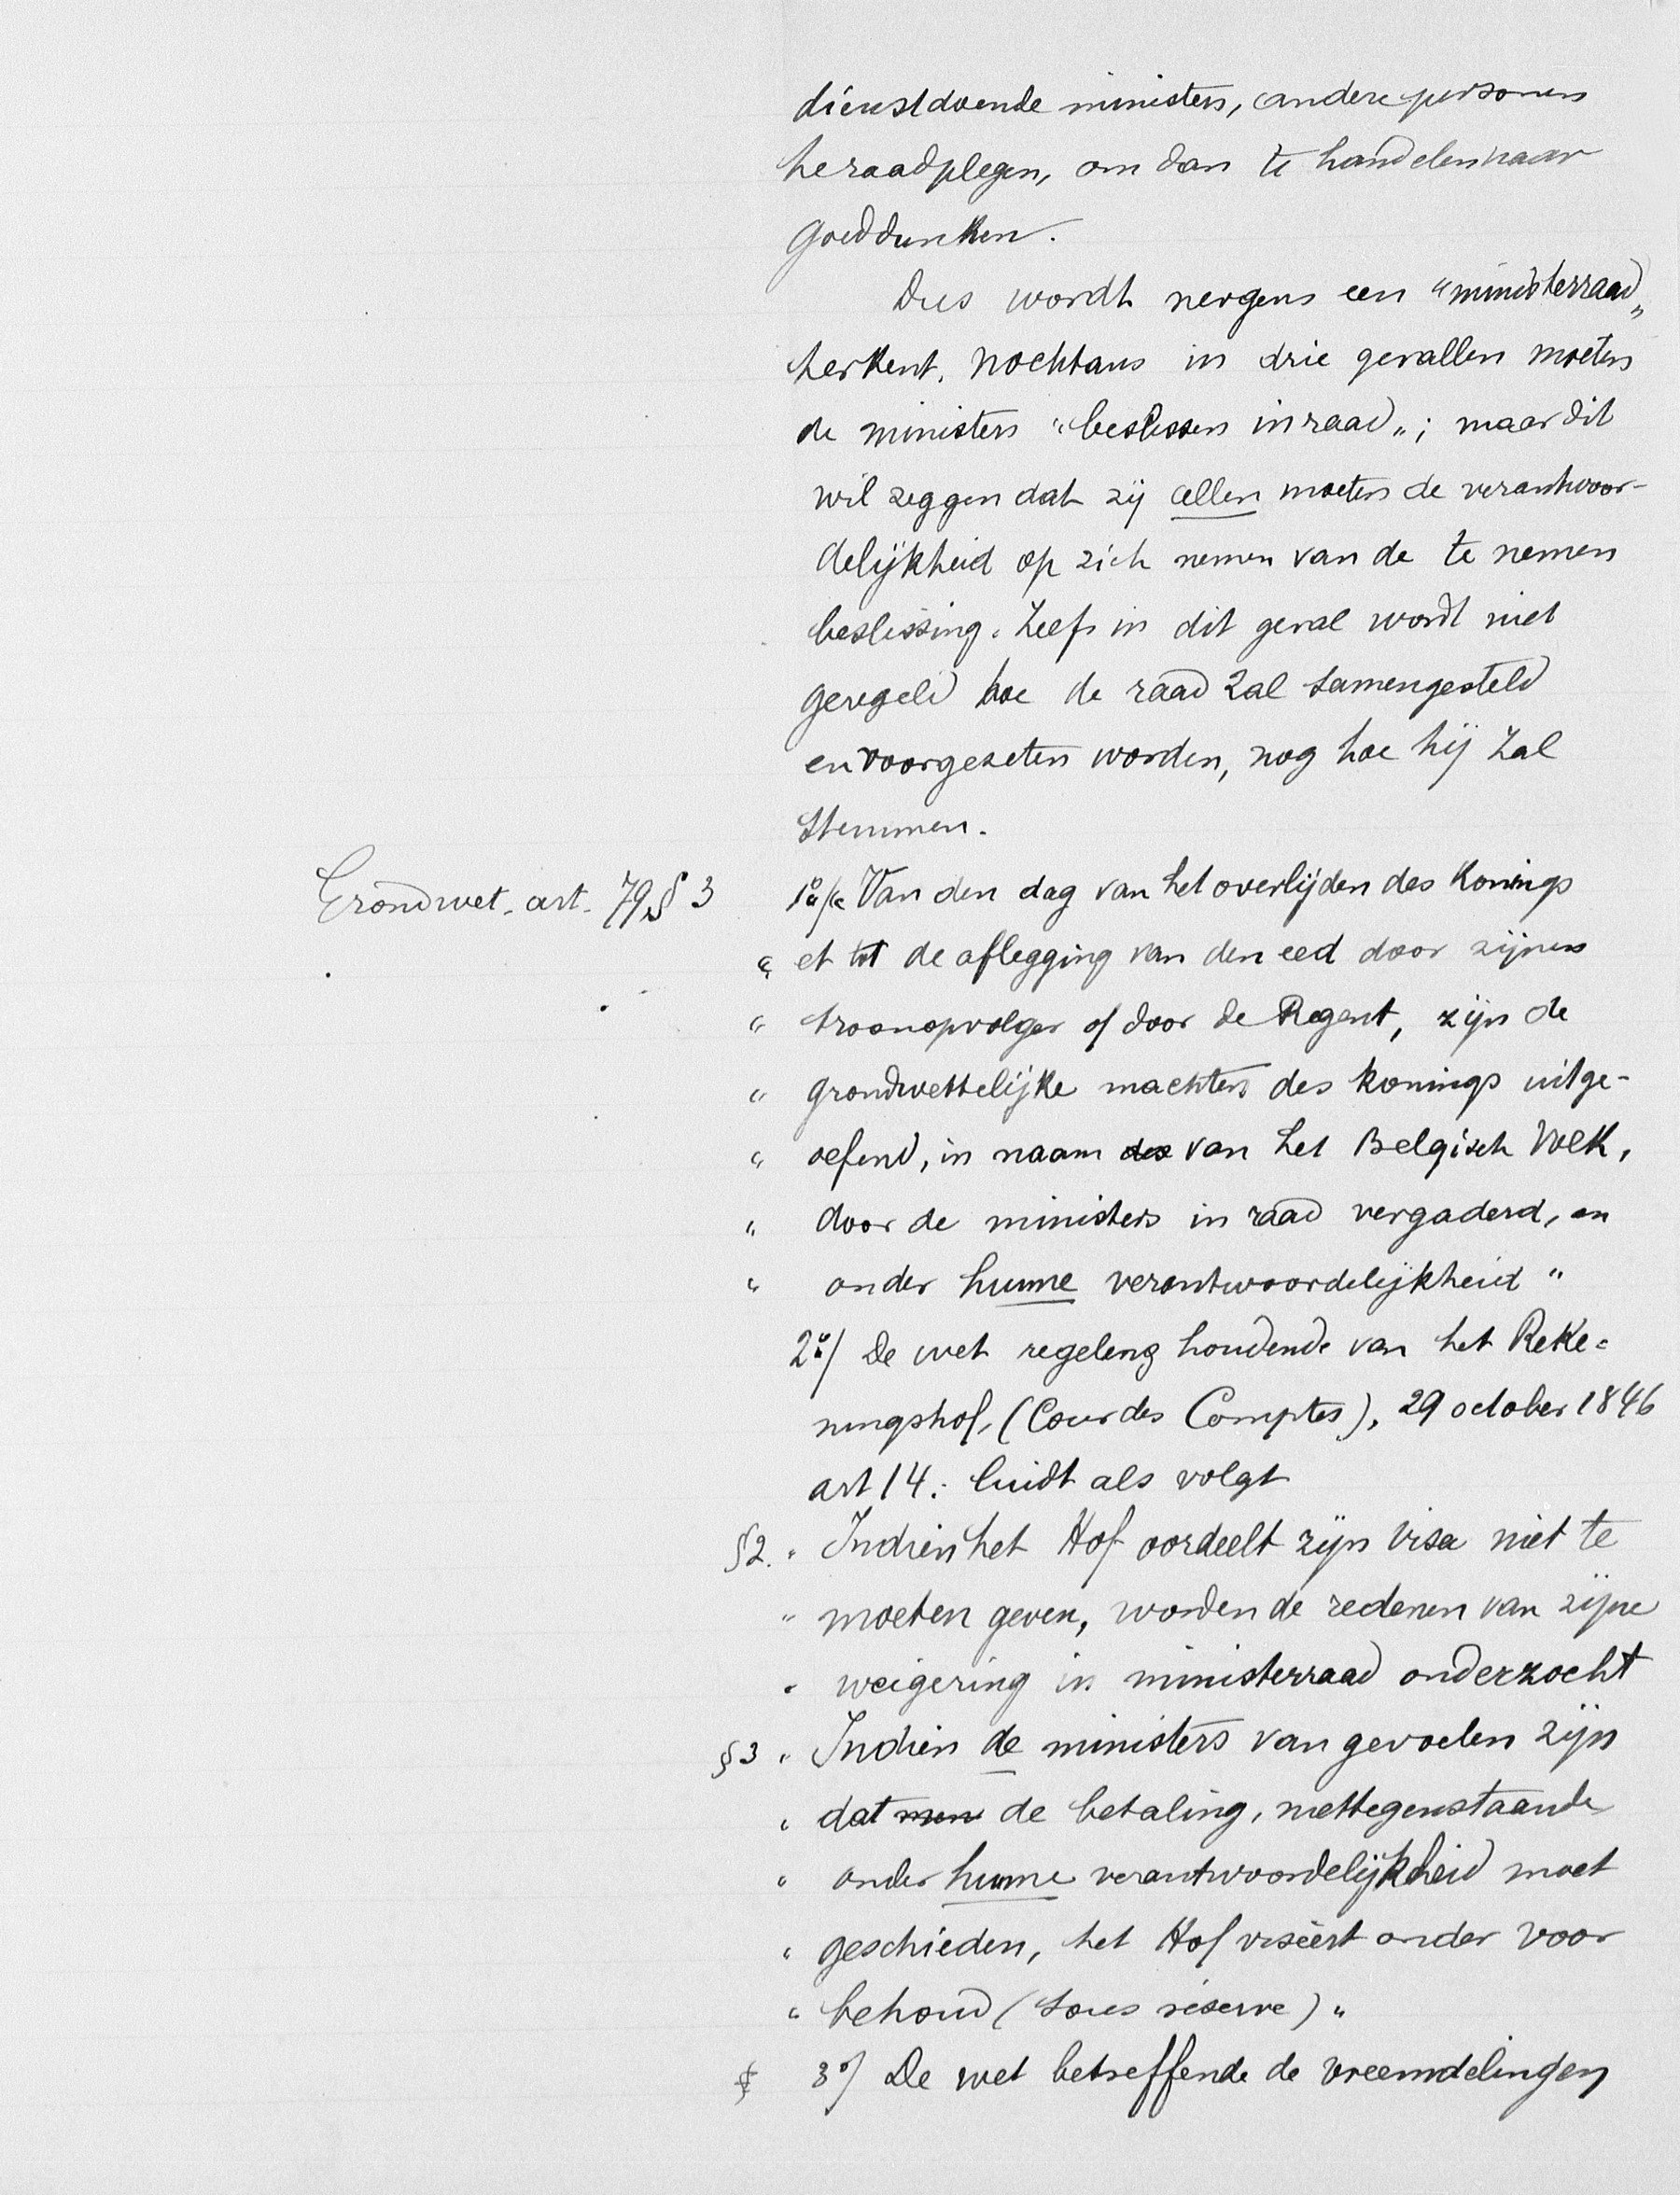 dienstdoende ministers, andere personen
te raadplegen, om dan te handelen naar
goeddunken.
Dus wordt nergens een "ministerraad„
herkent. Nochtans in drie gevallen moeten
de ministers "beslissen in raad„; maar dit
wil zeggen dat zij allen moeten de verantwoor-
delijkheid op zich nemen van de te nemen
beslissing. Zelfs in dit geval wordt niet
geregeld hoe de raad zal samengesteld
en voorgezeten worden, nog hoe hij zal
stemmen.
Grondwet. art. 79 § 3
1º/ " Van den dag van het overlijden des Konings
" et tot de aflegging van den eed door zijnen
" troonopvolger of door de Regent, zijn de
" grondwettelijke machten des konings uitge-
" oefend, in naam des van het Belgisch Volk,
" door de ministers in raad vergaderd, en
" onder hunne verantwoordelijkheid "
2º/ De wet regeleng houdende van het Reke=
ningshof, (Cour des Comptes), 29 october 1846
art 14: luidt als volgt
§2. " Indien het Hof oordeelt zijn visa niet te
" moeten geven, worden de redenen van zijne
" weigering in ministerraad onderzocht
§3 " Indien de ministers van gevoelen zijn
" dat men de betaling, niettegenstaande
" onder hunne verantwoordelijkheid moet
" geschieden, het Hof viseert onder voor
" behoud (sous réserve) "
§ 3º/ De wet betreffende de vreemdelingen